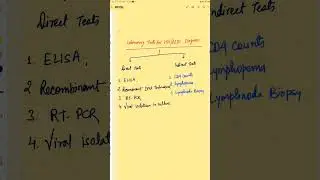 Direct Tests
1. ELISA,
2 Recombinant
3. RT-PCR
4. Viral isolat
Laboratory Tests for HIV/AIDS Diagnosis
Direct Tests
1. ELISA,
2 Recombinant DNA Techniques
3. RT-PCR,
4. Viral isolation in culture
Indirect Tests
1. CD4 Counts
2. Lymphopenia
3. Lymphnode Biopsy
Indirect Tests
CD4 Counts
Lymphopenia
Lymphnode Biopsy